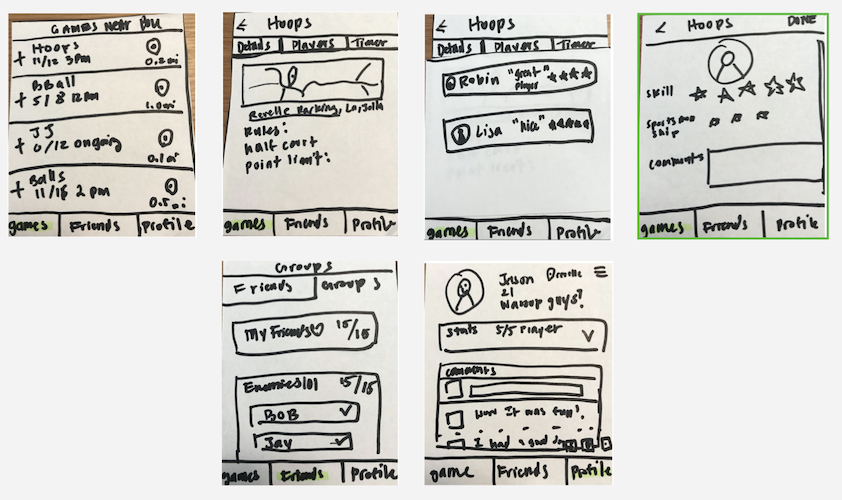 GAMES NEAR YOU
+ Hoops
11/12 3pm
0.2mi
+ BBall
5/8 12pm
1.0mi
+ JJ
0/12 ongoing
0.1mi
+ Balls
11/15 2 pm
0.5mi
games Friends Profile
← Hoops
Details Players Timer
Revelle Parking, La Jolla
Rules:
half court
point limit:
games Friends Profile
← Hoops
Details Players Timer
Robin "great"
player
Lisa "nice"
games Friends Profile
< Hoops DONE
skill
sportsman
ship
comments
games Friends Profile
Groups
Friends Groups
My Friends♡ 15/15
Enemies101 15/15
BOB ✓
Jay ✓
games Friends Profile
Jason Revelle
21
Wassup guys?
stats 5/5 Player
comments
Wow It was fun!
I had a good
game Friends Profile